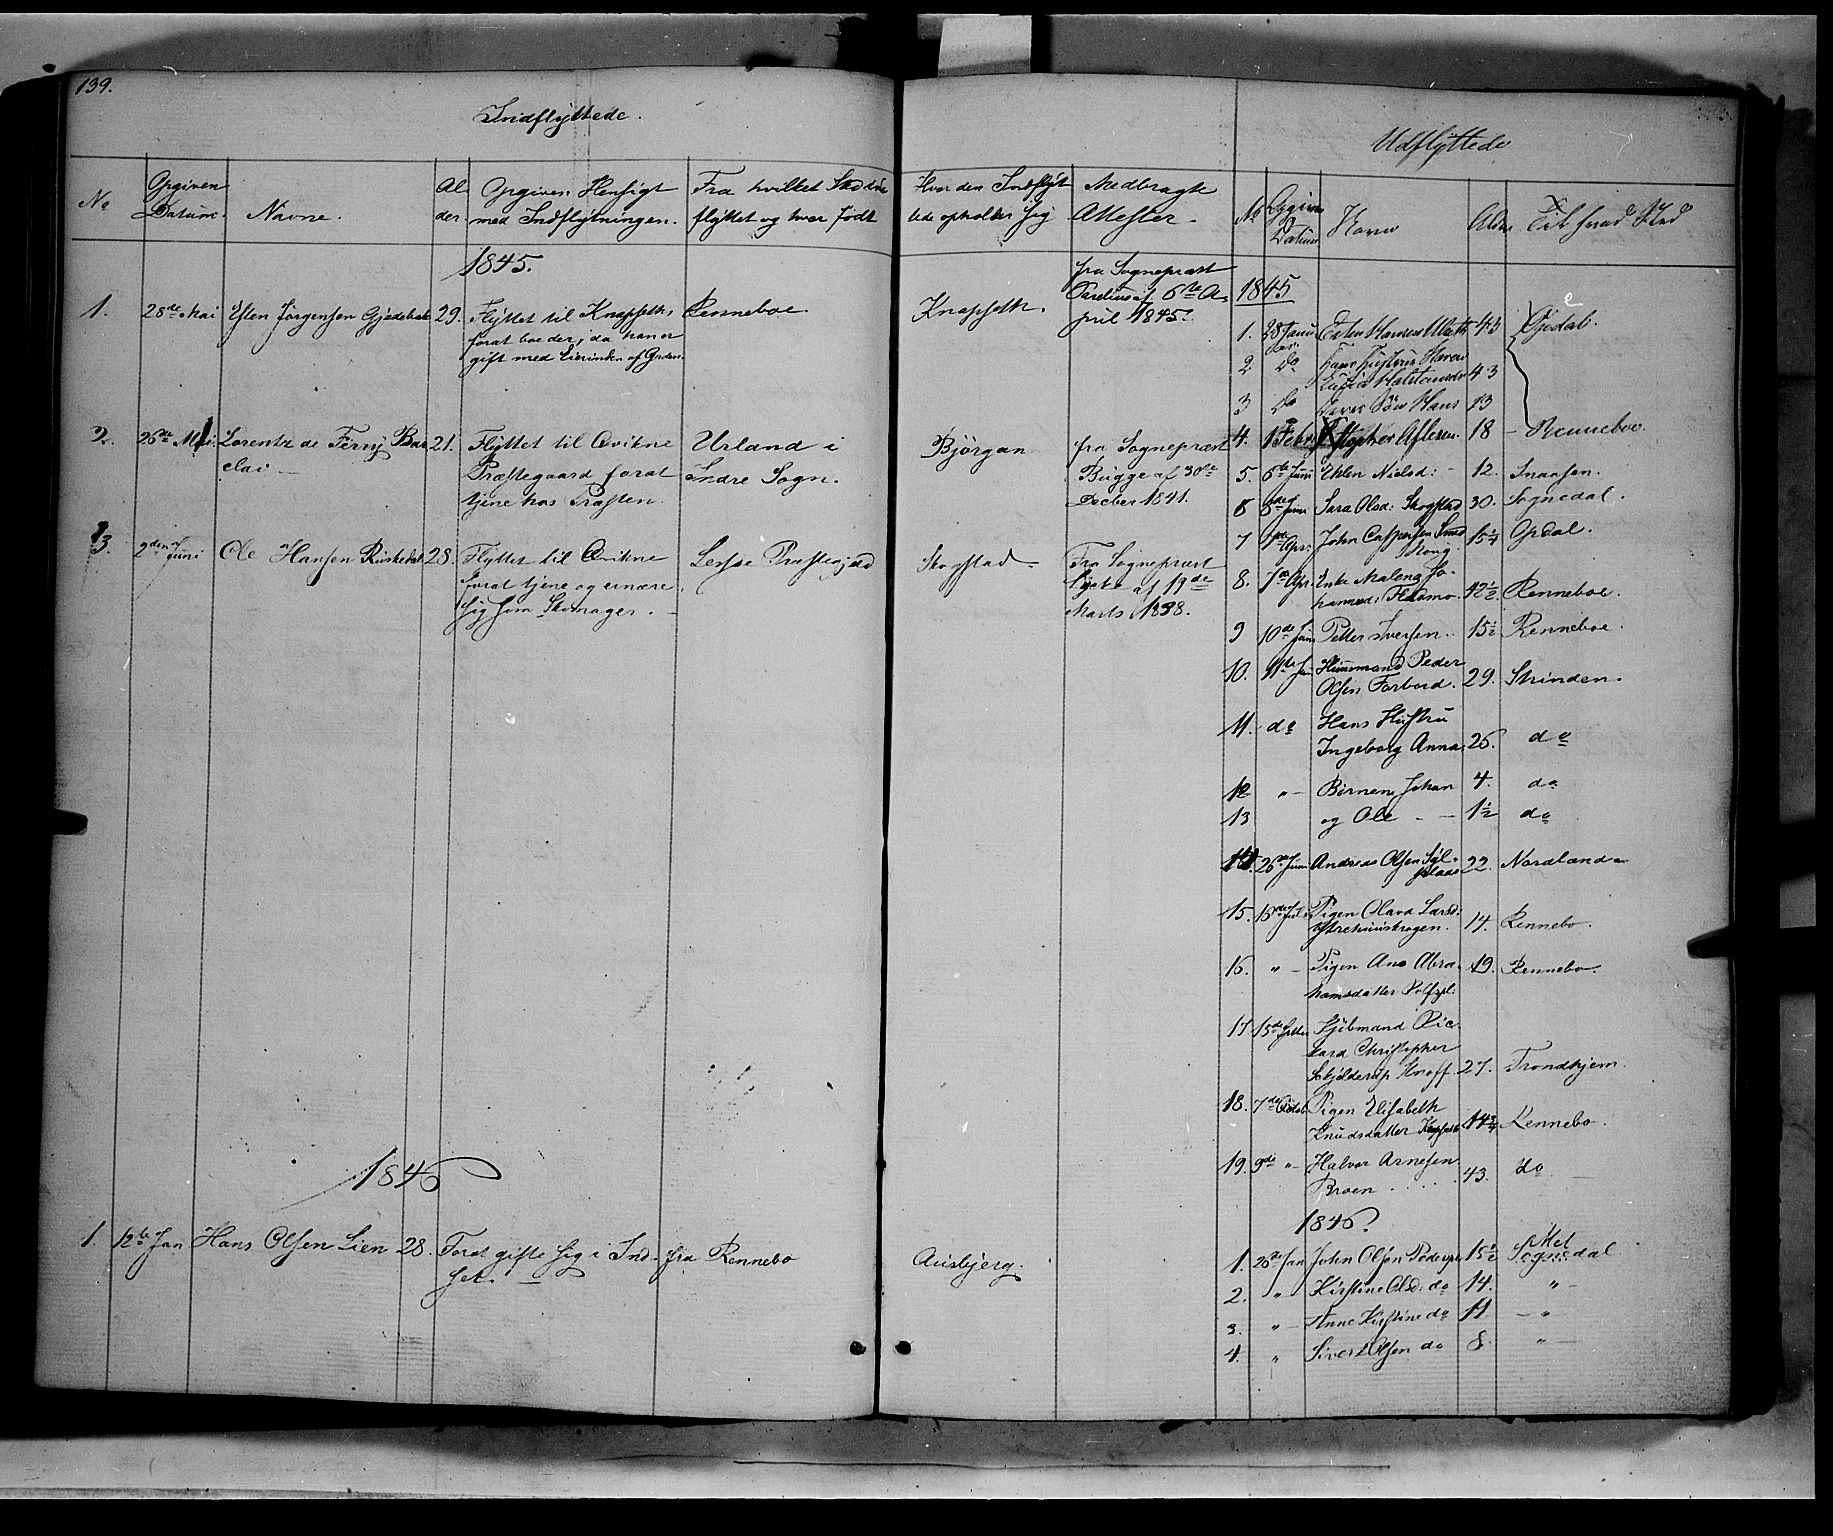 139.
Indflyttede.
No
Opgiven Datum.
Navne.
Al-
der.
Opgiven Hensigt
med Indflytningen.
Fra hvilket Sted ind
flyttet og hvor født
Hvor den Indflyt
tede opholder sig
Medbragte
Attester.
1845.
1.
28de Mai
Esten Jørgensen Gjedebak
29.
Flyttet til Knapseth,
forat boe der, da han er
gift med Eierinden af Gaarden.
Renneboe
Knapseth.
fra Sognepræst
af 6te A-
pril 1845.
2.
26de Mai.
Lorentz de Ferry Bar
clai —
21.
Flyttet til Qvikne
Præstegaard forat
tjene hos Præsten.
Urland i
Indre Sogn.
Bjørgan
fra Sognepræst
Bugge af 30te
Decber 1841.
3.
2den Juni
Ole Hansen
28.
Flyttet til Qvikne
forat tjene og ernære
sig som Skomager.
Lessøe Præstegjeld
Skogstad.
Fra Sognepræst
af 19de
Marts 1838.
1846
1.
12te Jan
Hans Olsen Lien
28.
Forat gifte sig i Ind-
set.
fra Rennebo
Ausbjerg.
Udflyttede
No
Opgiven
Datum
Navn
Alder
Til hvad Sted
1845
1. 28 Janu Esten 43 Opdal.
2 Do Hans Hustrue Karen
43
3 Do Søn Hans 13
4. 1 Febr 18 — Renneboe
5. 6te Juni Nielsd: 12. Snaasen.
6 8de Juni Sara Olsd: Skogstad 30. Sognedal.
7 Apr: John Caspersen 15¼ Opdal.
8. 7de Apr. Malena Jo-
hannesd: Flaamo. 12½ Renneboe.
9 10de Jun Petter Iversen. 15½ Renneboe.
10. 11te Jun Huusmand Peder
Olsen Forbord. 29. Strinden.
11. do Hans Hustru
Ingeborg Anna 26. do
12 " – Børnene Johan 4. do
13 og Ole — 1½ do
14. 26de Juni Andreas Olsen 22. Nordland
15. 16de Juli Pigen Olava Larsd:
14. Rennebo.
16. " – Pigen Ane Abra-
hamsdatter 19. Rennebo.
17 15de Kjøbmand Ric-
kard Christopher
Schjelderup Knoff. 27. Trondhjem.
18. 7de Octob Pigen Elisabeth
Knudsdatter Knapseth 14¾ Rennebo.
19. 9de " – Halvor Arnesen
Broen . . . . 43. do
1846.
1. 26de Jan John Olsen 15½ Mel
Sognedal
2. " Kirstine Olsd: do 14. " –
3. " – Anne Kirstine do 11. – "
4. " Sivert Olsen do 8. " —